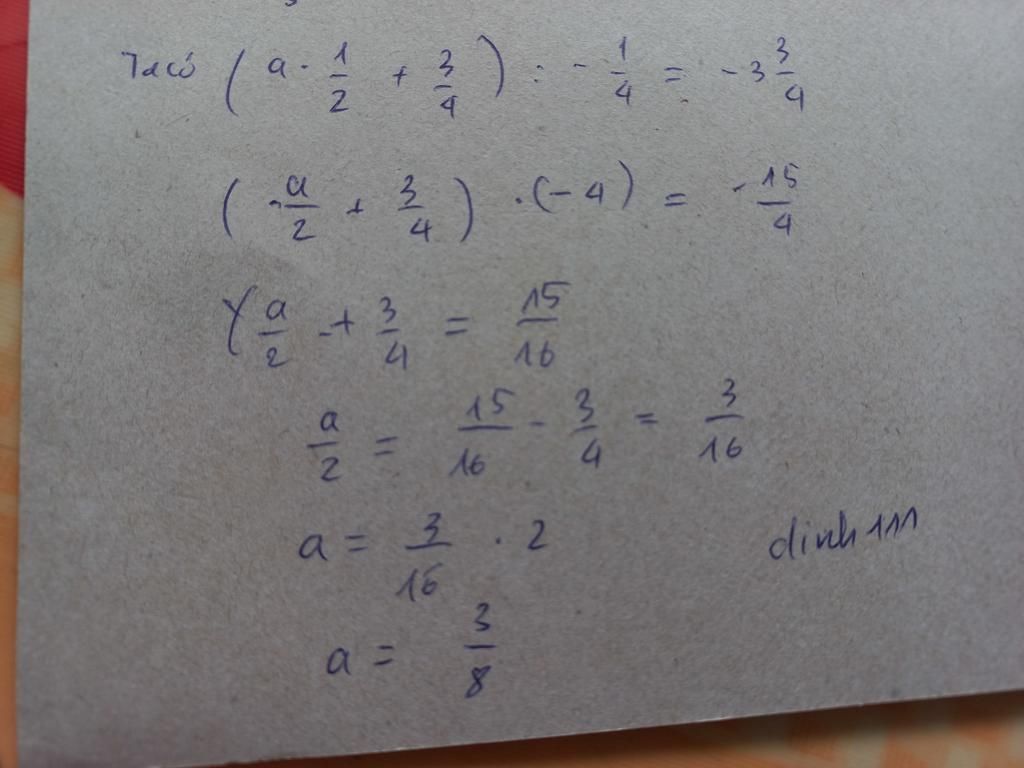 Ta có ( a · 1/2 + 3/4 ) : - 1/4 = - 3 3/4
( a/2 + 3/4 ) · (- 4) = - 15/4
a/2 + 3/4 = 15/16
a/2 = 15/16 - 3/4 = 3/16
a = 3/16 · 2
dinh 111
a = 3/8